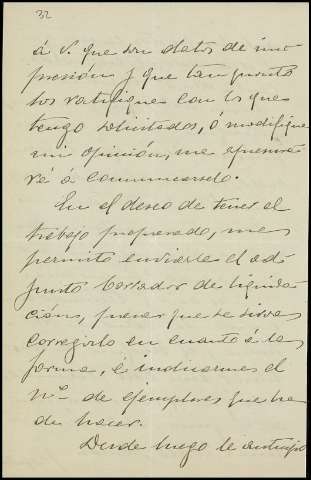 32
á V. que son datos de im
presión y que tan pronto
los ratifique con los que
tengo solicitados, ó modifique
mi opinión, me apresura
ré á comunicarselo.
En el deseo de tener el
trabajo preparado, me
permito enviarle el ad
junto borrador de liquida
ción, para que se sirva
corregirlo en cuanto á la
forma, é indicarme el
nº de ejemplares que ha
de hacer.
Desde luego le anticipo